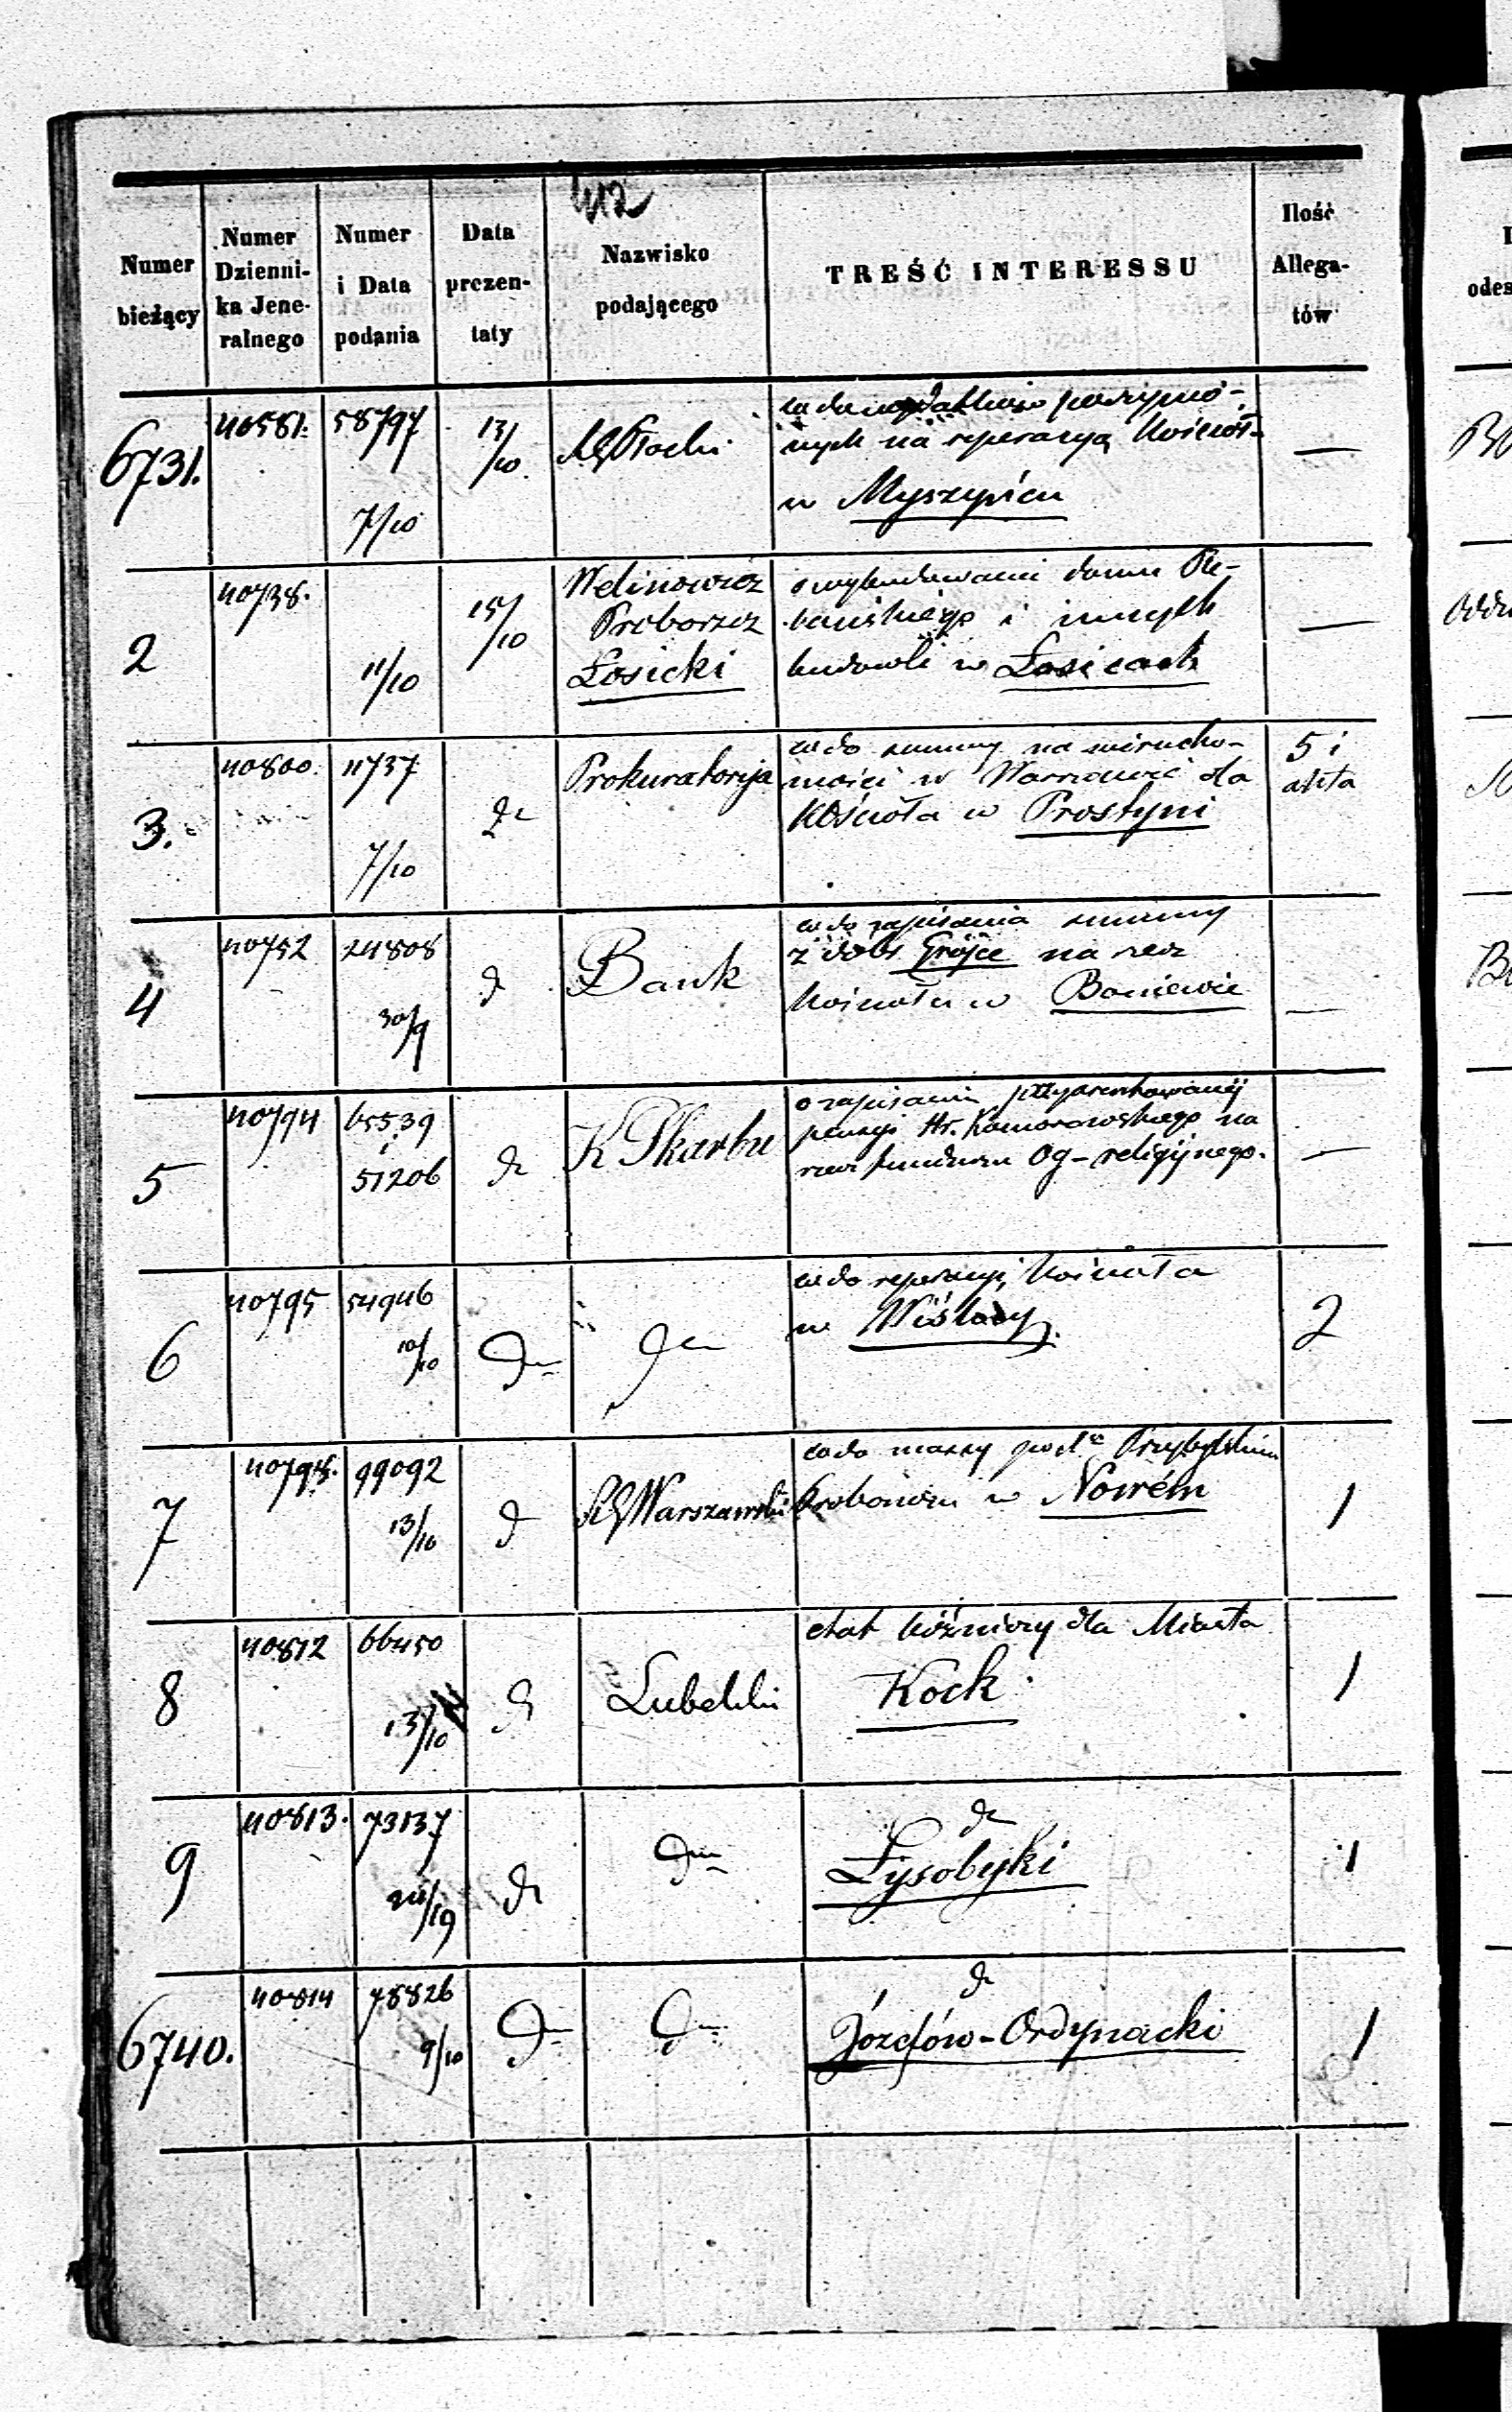 412
Numer bieżący
Numer Dzienni-ka Jene-ralnego
Numer i Data podania
Data prezen-taty
Nazwisko podającego
TREŚĆ INTERESSU
Ilość Allega-tów
6731. 40581. 58797 7/10 13/10 RG Płocki
co do wydatków poczynio-
nych na reperacyą Kościoła
w Myszyńcu
—
2 40738. 11/10 15/10
Welinowicz
Proboszcz
Łosicki
o wybudowanie domu Ple-
bańskiego i innych
budowli w Łosicach
—
3. 40800. 11737 7/10 do Prokuratorija
co do summy na nierucho-
mości w Warszawie dla
Kościoła w Prostyni
5 i
akta
4 40752 24808 30/9 d Bank
co do zapisania summy
z dóbr Grójce na rzecz
Kościoła w Boniewie
—
5 40794 65539
i
51206 do K Skarbu
o zapisanie
pensyi Hr. Komorowskiego na
rzecz funduszu Og-religijnego.
—
6 40795 54946 10/10 do do
co do reperacyi Kościoła
w
2
7 99092 13/10 d RG Warszawski
co do massy po
w Nowém
1
8 40812 66450 13/10 d Lubelski
etat bóźniczy dla Miasta
Kock
1
9 40813. 73137 do do
do
Łysobyki
1
6740. 40814 78826 9/10 do do
do
Józefów-Ordynacki
1